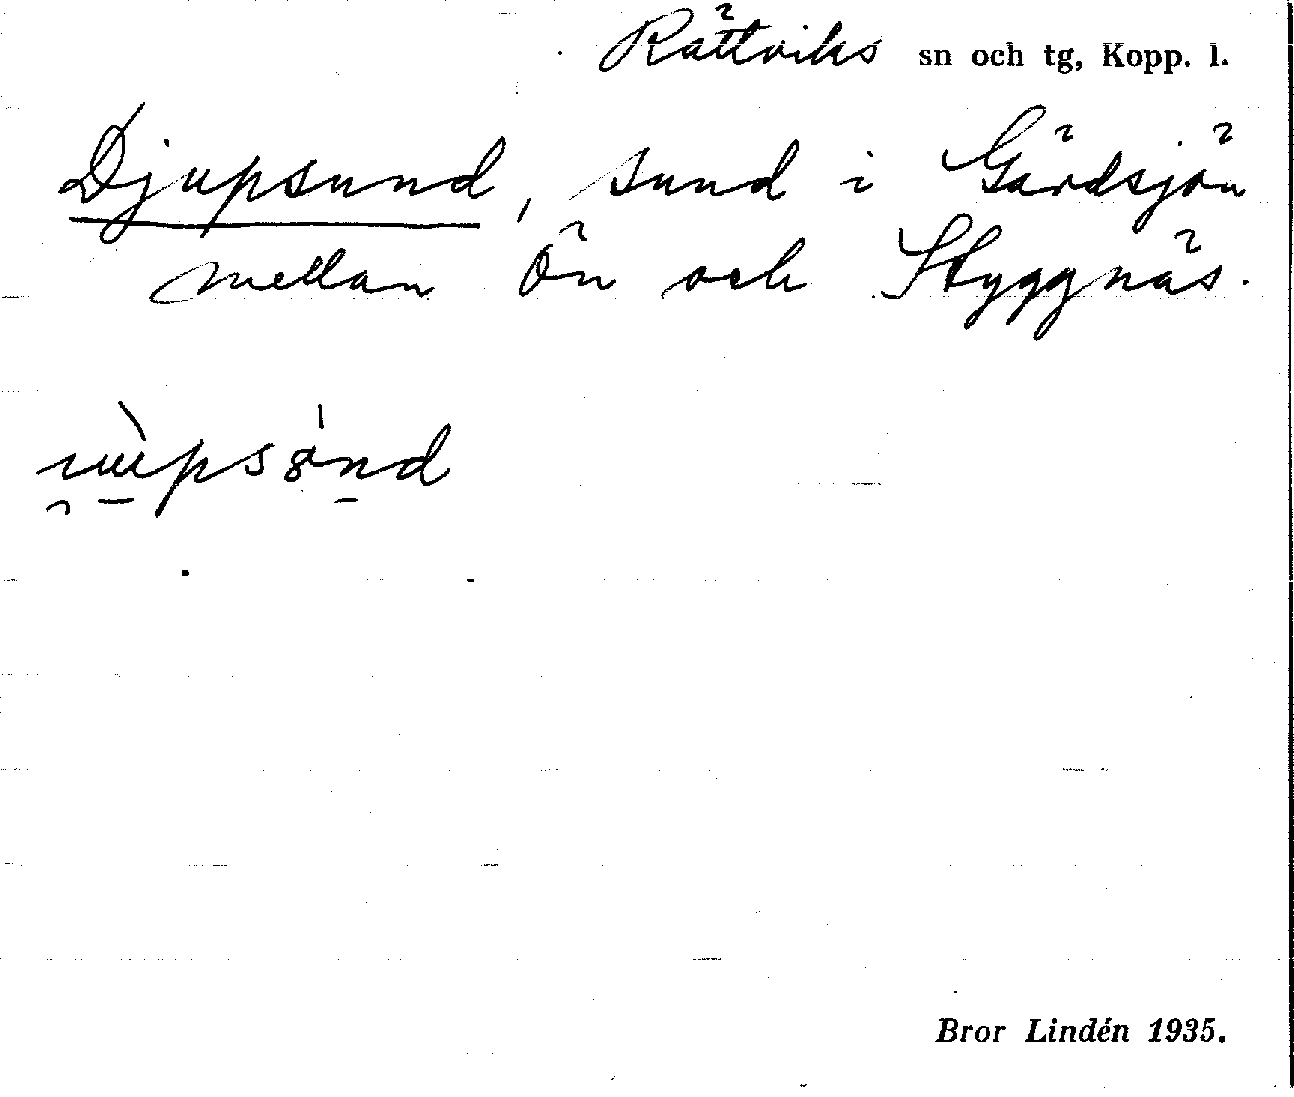 Rättviks sn och tg, Kopp. l.
Djupsund, sund i Gärdsjön
mellan Ön och Styggnäs.
Bror Lindén 1935.